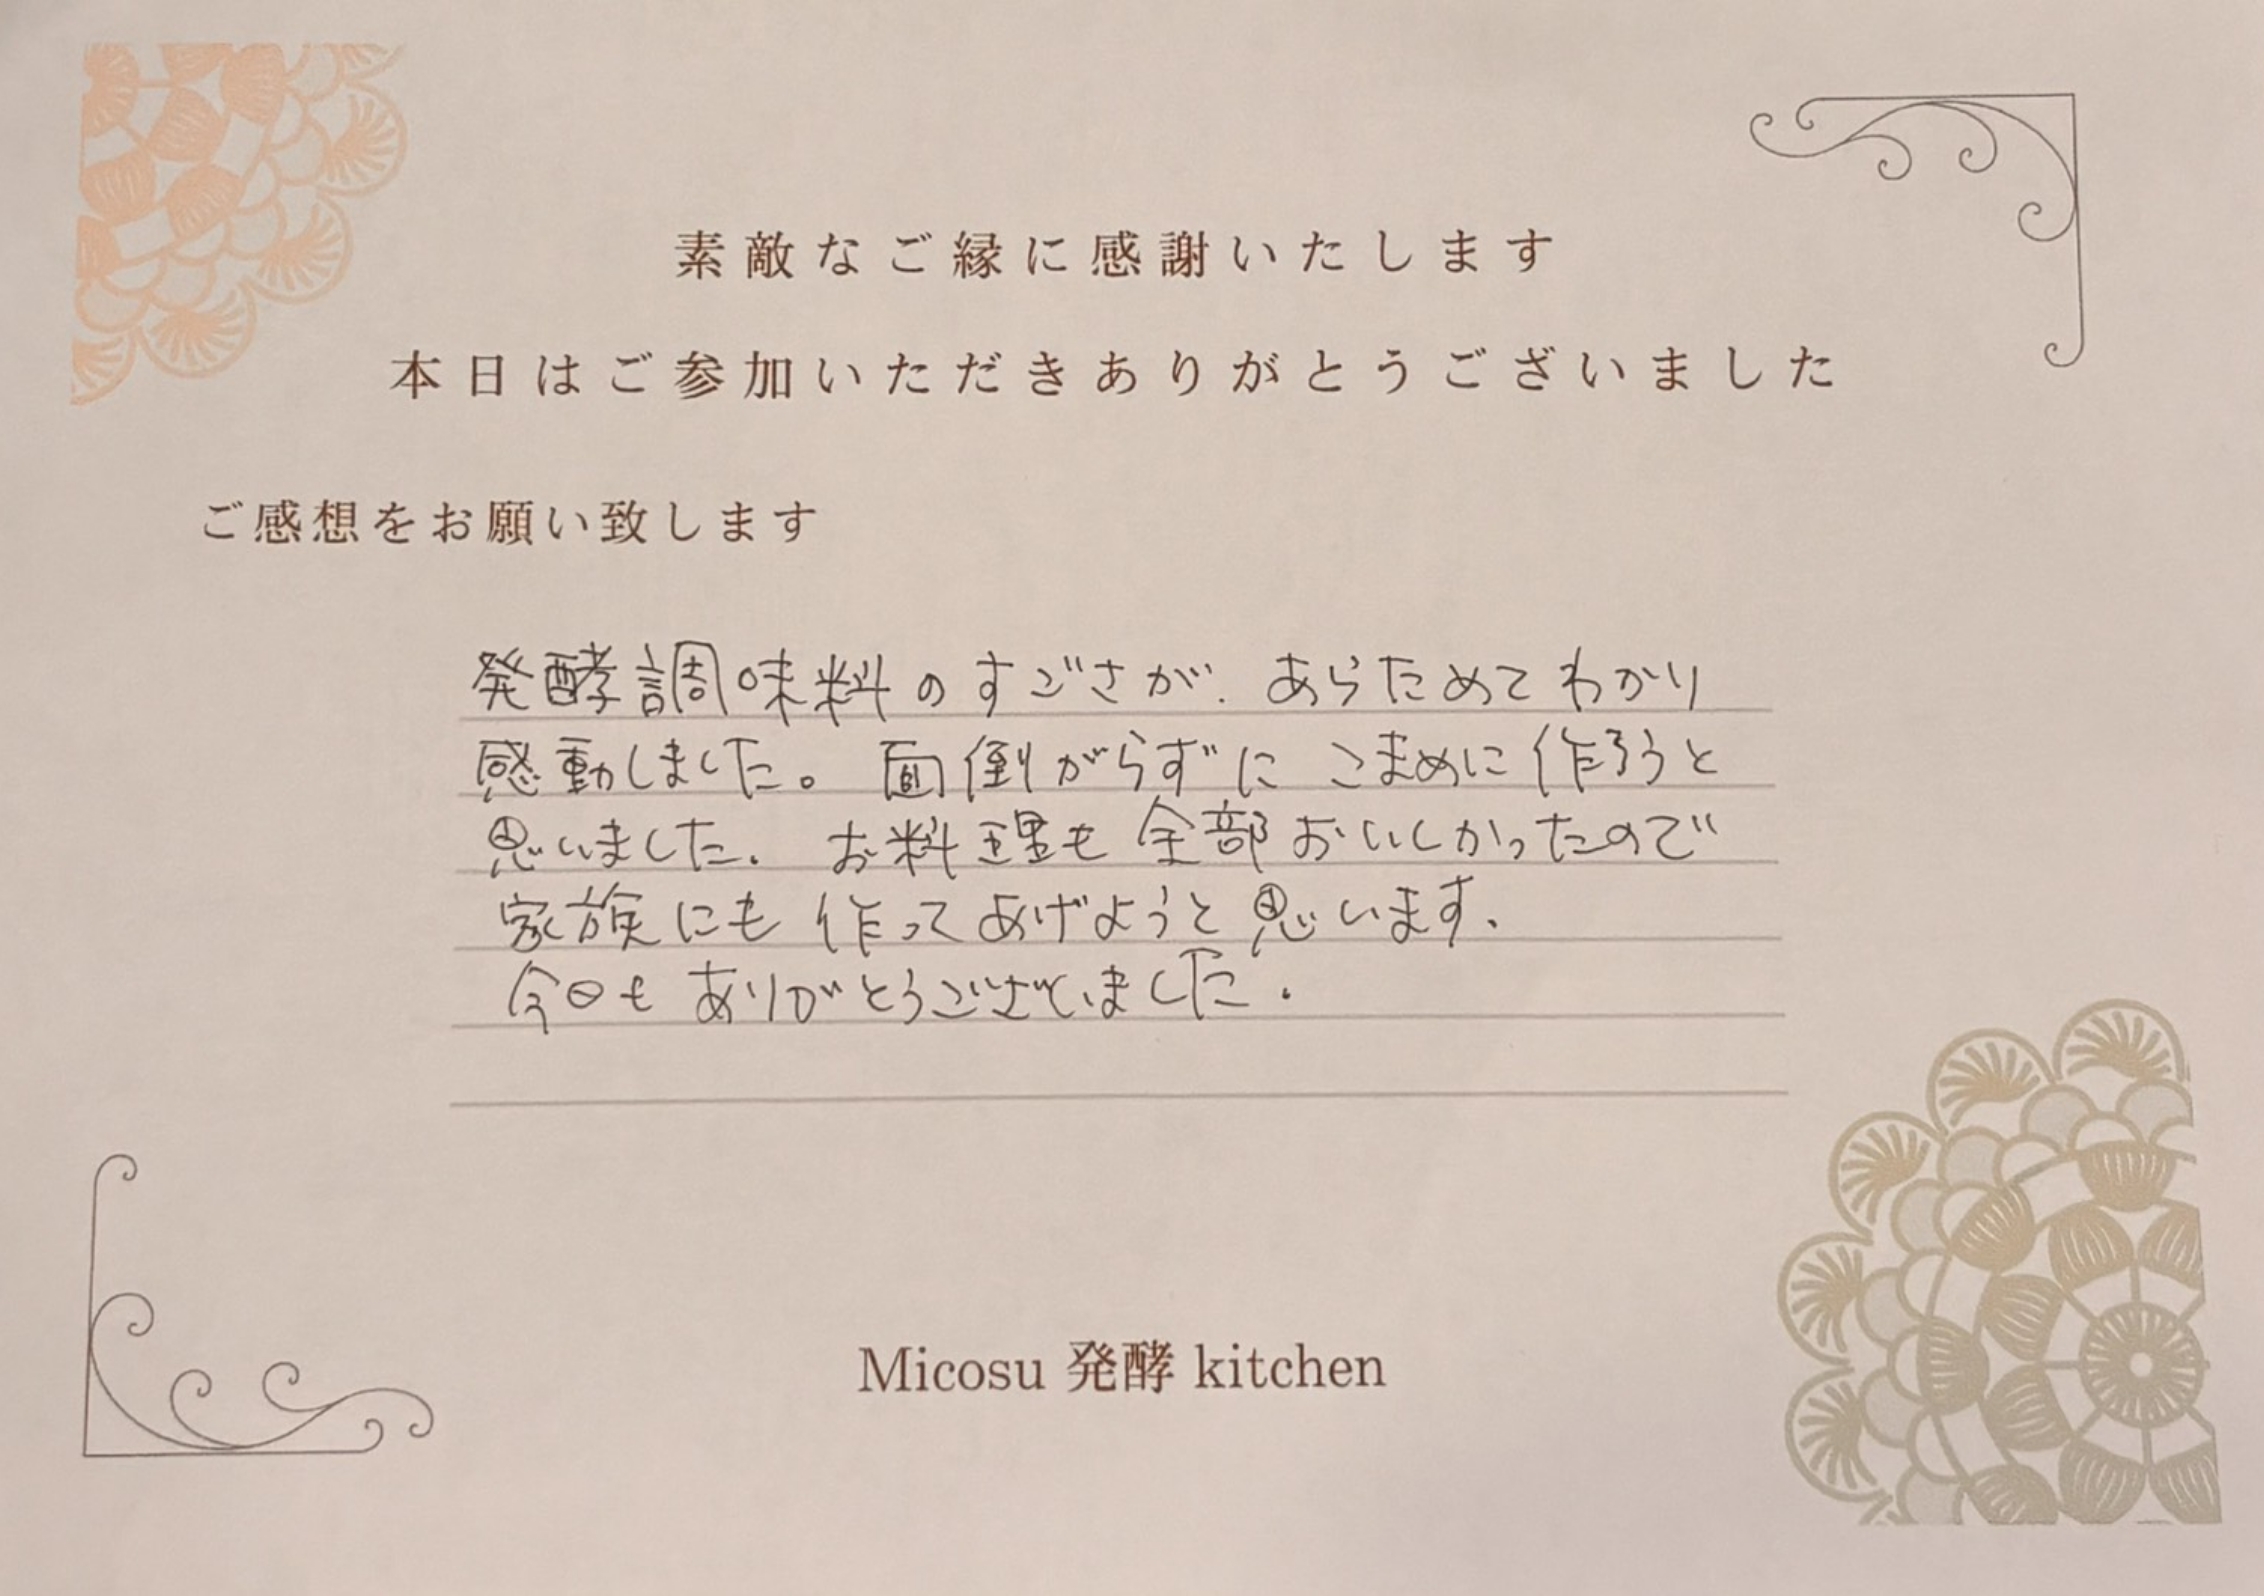 素敵なご縁に感謝いたします
本日はご参加いただきありがとうございました
ご感想をお願い致します
発酵調味料のすごさが、あらためてわかり
感動しました。面倒がらずに こまめに作ろうと
思いました。お料理も全部おいしかったので
家族にも作ってあげようと思います。
今日もありがとうございました。
Micosu 発酵 kitchen